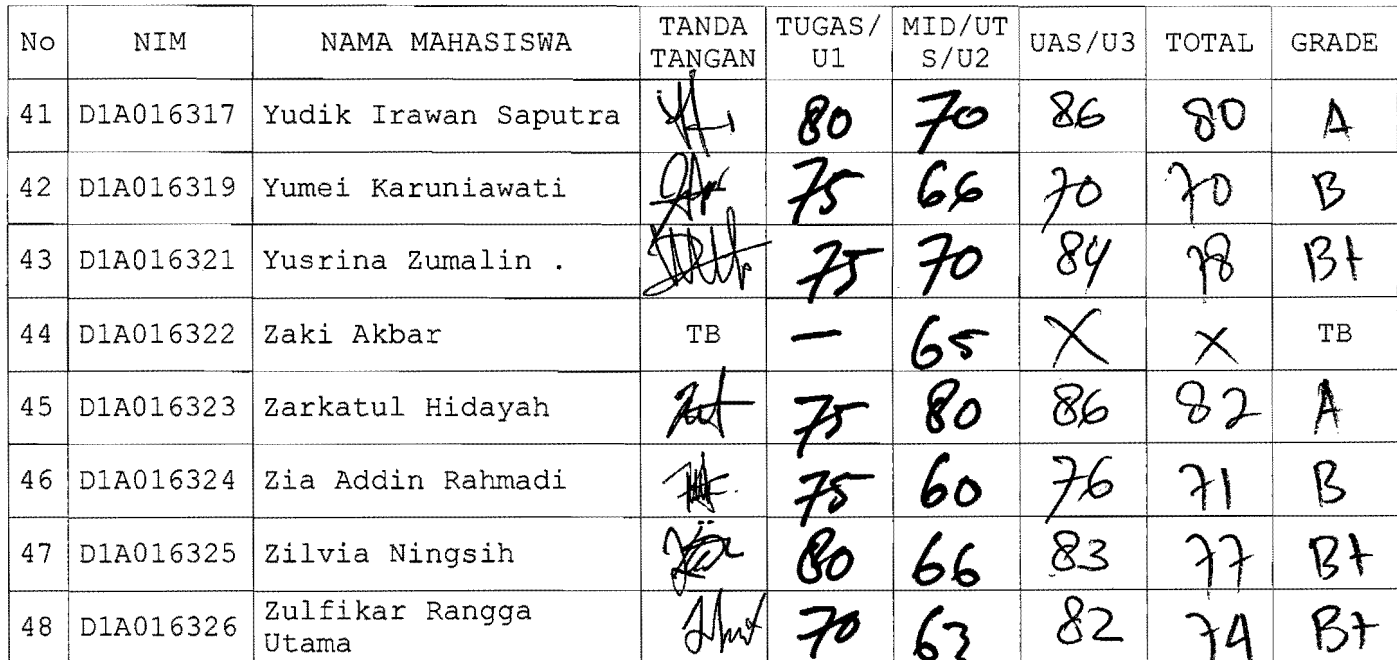 No NIM NAMA MAHASISWA TANDA TANGAN TUGAS/ U1 MID/UT S/U2 UAS/U3 TOTAL GRADE
41 D1A016317 Yudik Irawan Saputra 80 70 86 80 A
42 D1A016319 Yumei Karuniawati 75 66 70 70 B
43 D1A016321 Yusrina Zumalin . 75 70 84 78 B+
44 D1A016322 Zaki Akbar TB — 65 X X TB
45 D1A016323 Zarkatul Hidayah 75 80 86 82 A
46 D1A016324 Zia Addin Rahmadi 75 60 76 71 B
47 D1A016325 Zilvia Ningsih 80 66 83 77 B+
48 D1A016326 Zulfikar Rangga Utama 70 63 82 74 B+